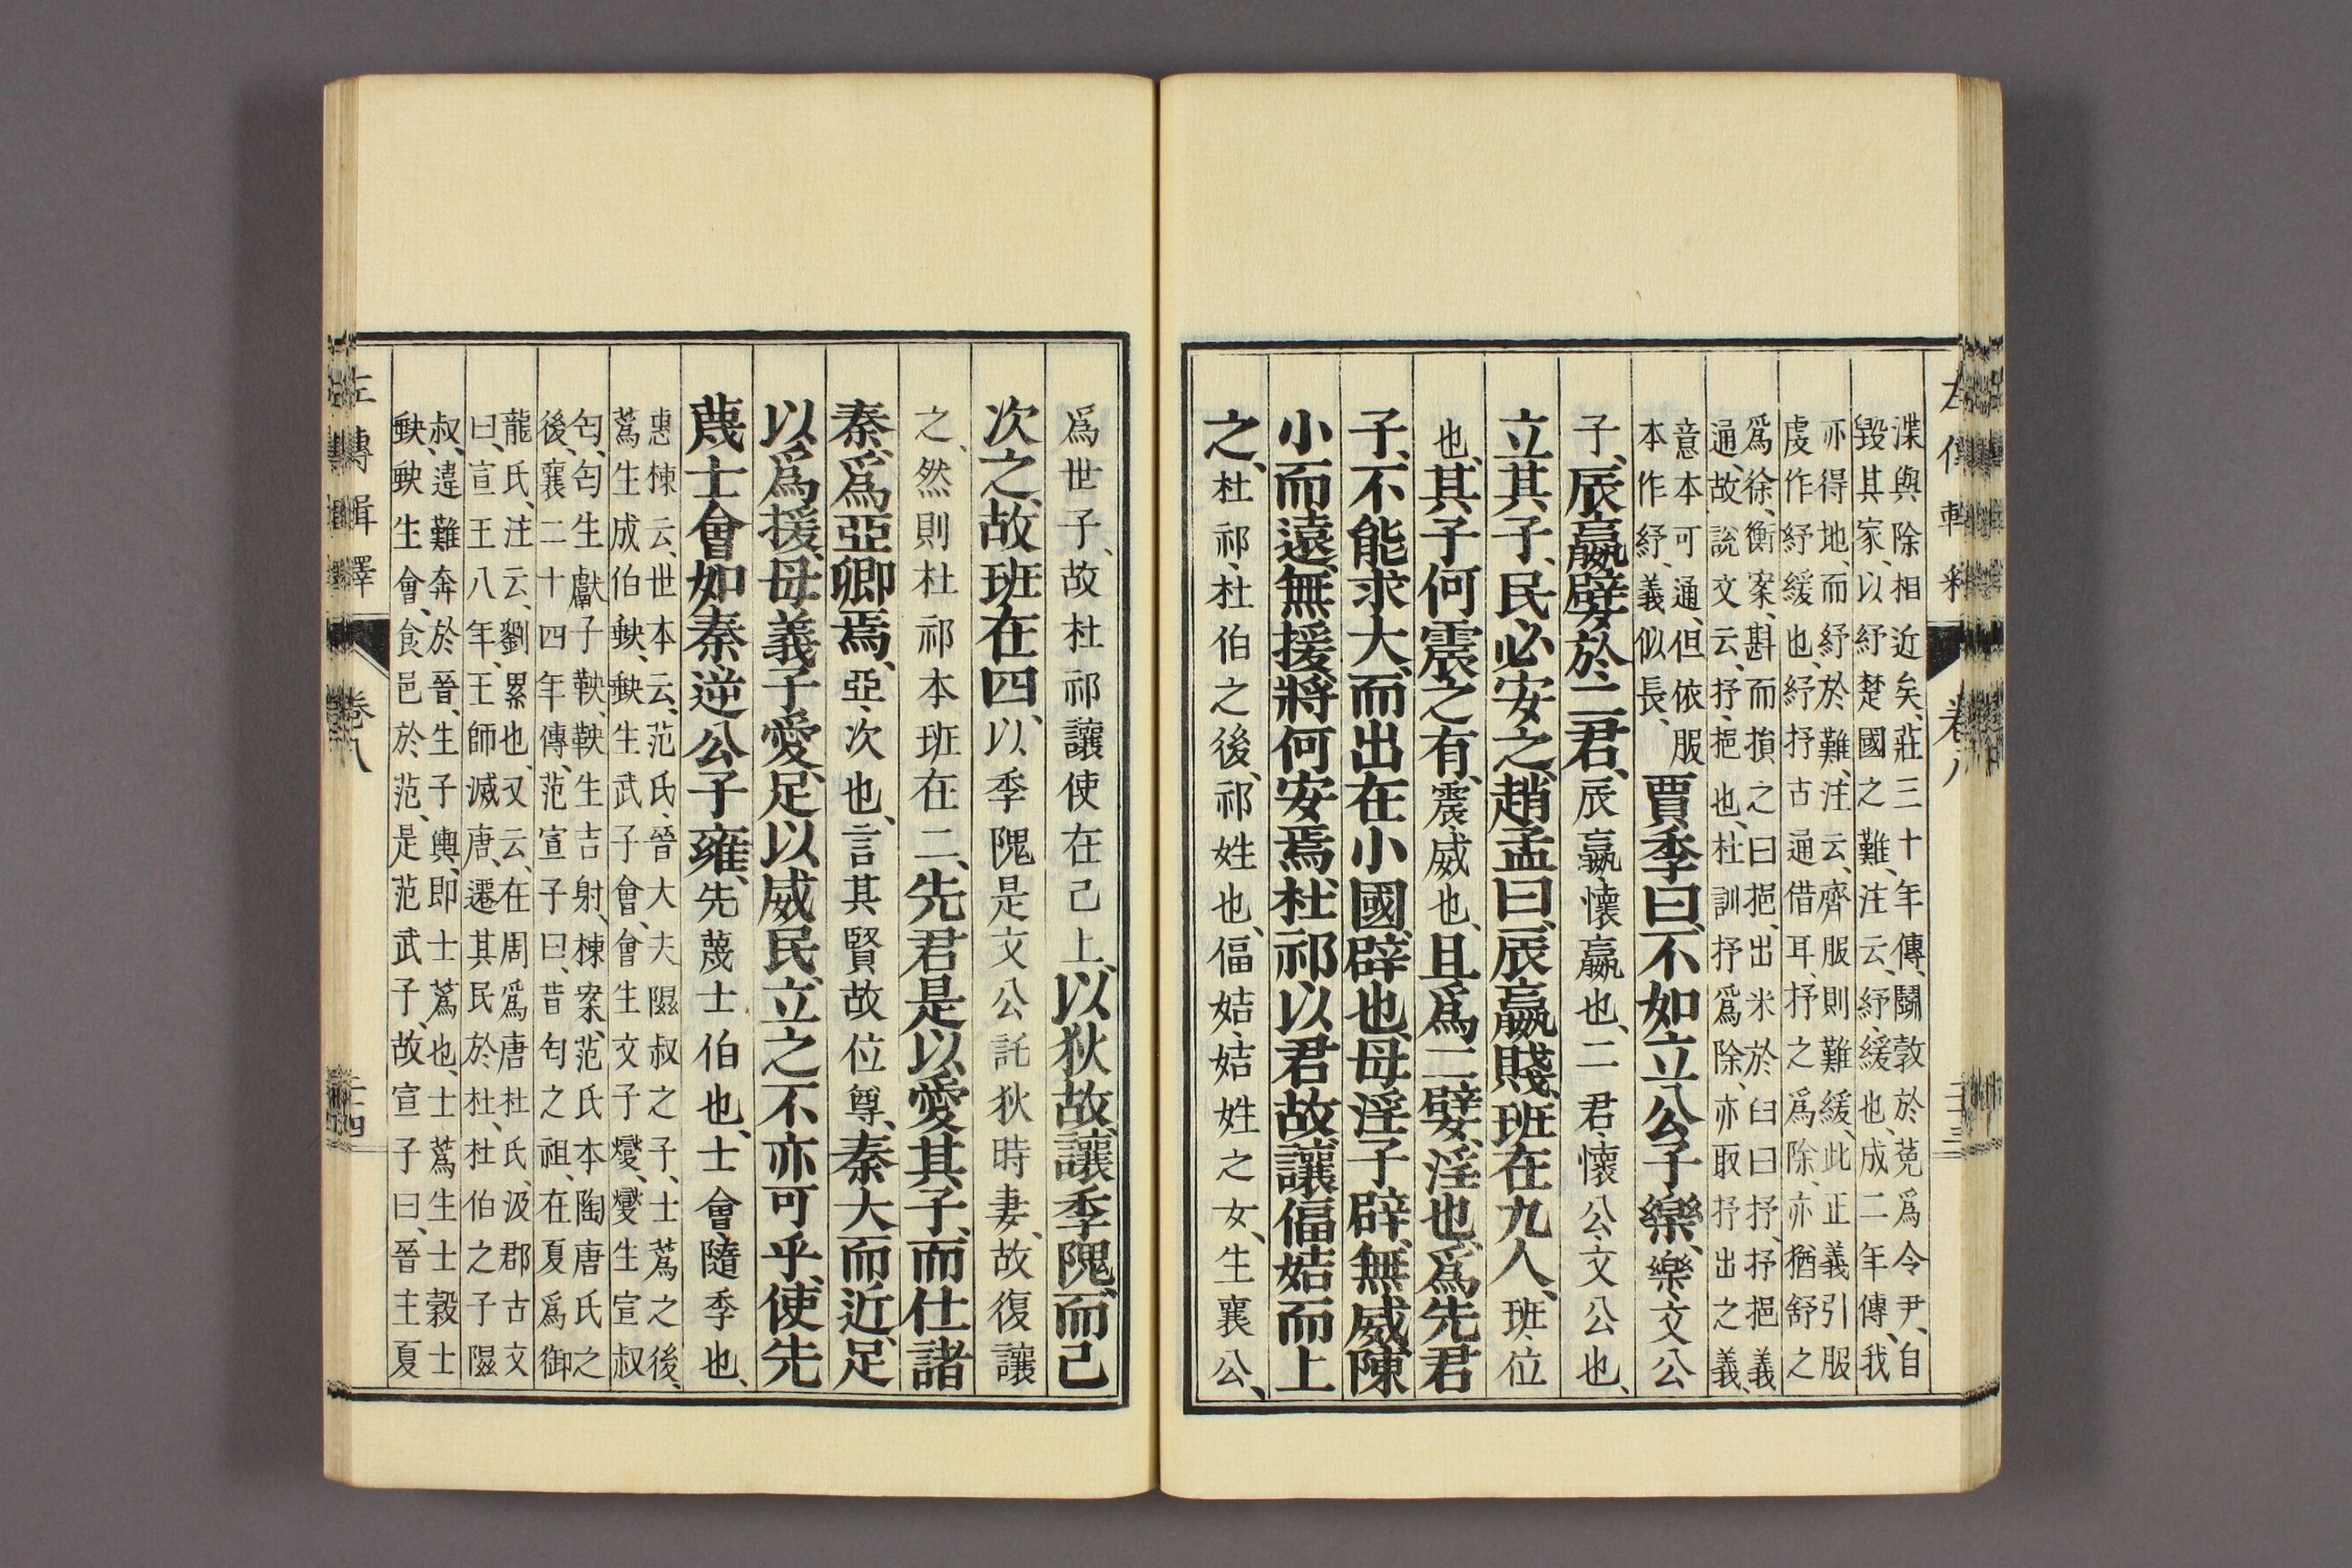 左傳輯釋 卷八 二十三
渫與除相近矣、莊三十年傳、鬭敦於菟爲令尹、自
毀其家、以紓楚國之難、注云、紓、緩也、成二年傳、我
亦得地、而紓於難、注云、齊服則難緩、此正義引服
虔作紓緩也、紓抒古通借耳、抒之爲除、亦猶舒之
爲徐、衡案、斟而損之曰挹、出米於臼曰抒、抒挹義
通、故説文云、抒、挹也、杜訓抒爲除、亦取抒出之義、
意本可通、但依服
本作紓、義似長、
賈季曰、不如立公子樂、樂、文公
子、辰嬴嬖於二君、辰嬴、懷嬴也、二君、懷公、文公也、
立其子、民必安之、趙孟曰、辰嬴賤、班在九人、班、位
也、其子何震之有、震、威也、且爲二嬖、淫也、爲先君
子、不能求大、而出在小國、辟也、母淫子辟、無威、陳
小而遠、無援、將何安焉、杜祁以君故、讓偪姞而上
之、杜祁、杜伯之後、祁姓也、偪姞、姞姓之女、生襄公、
爲世子、故杜祁讓使在己上、以狄故、讓季隗、而己
次之、故班在四、以季隗是文公託狄時妻、故復讓
之、然則杜祁本班在二、先君是以愛其子、而仕諸
秦、爲亞卿焉、亞、次也、言其賢故位尊、秦大而近、足
以爲援、母義子愛、足以威民、立之不亦可乎、使先
蔑士會如秦、逆公子雍、先蔑士伯也、士會、隨季也、
惠棟云、世本云、范氏、晉大夫隰叔之子、士蔿之後、
蔿生成伯缺、缺生武子會、會生文子燮、燮生宣叔
匄、匄生獻子鞅、鞅生吉射、棟案、范氏本陶唐氏之
後、襄二十四年傳、范宣子曰、昔匄之祖、在夏爲御
龍氏、注云、劉累也、又云、在周爲唐杜氏、汲郡古文
曰、宣王八年、王師滅唐、遷其民於杜、杜伯之子隰
叔、違難奔於晉、生子輿、即士蔿也、士蔿生士縠士
缺、缺生會、食邑於范、是范武子、故宣子曰、晉主夏
左傳輯釋 卷八 二十四